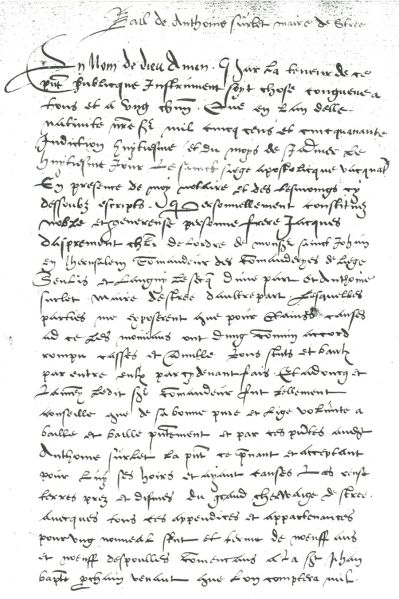 Bail de Anthoine Surlet maire de Stree
En Nom de dieu Amen. Par la teneur de ce
pnt publicque Instrument soit chose congneue a
tous et a ung chun Que en lan delle
nativite nre Sr mil cincq cens et cincquannte
Indiction huytiesme et du moys de Janvier le
huytiesme Jour Le sainct siege apostolicque vacquant
En presence de moy notaire et des tesmoings cy
dessoubz escripts Personnellement constitues
noble et genereuse personne frere Jacques
daspremont chlr de lordre de monsr sainct Johan
en Jherusalem Comandeur des Comanderyes de liege
et dune part et Anthoine
Surlet maire destree daultre part Lesquelles
parties me exposerent que pour causes
ad ce les mouvans ont dung comun accord
rompu casses et Tous et
par entre eulx par cydevant fais Et adoncq et
ledit Sr Comandeur tellement
conselle que de sa bonne pure et lige volunte a
baille et baille pntement et par ces pntes audit
Anthoine Surlet la pnt ce prnant et acceptant
pour luy ses hoirs et ayant causes Les cense
terres prez et dismes du grand de stree
avecques tous ces appendices et appartenances
pour ung nouveau et terme de noeuff ans
et noeuff despoulles comencans a la St Jehan
bapte pchain venant que lon comptera mil